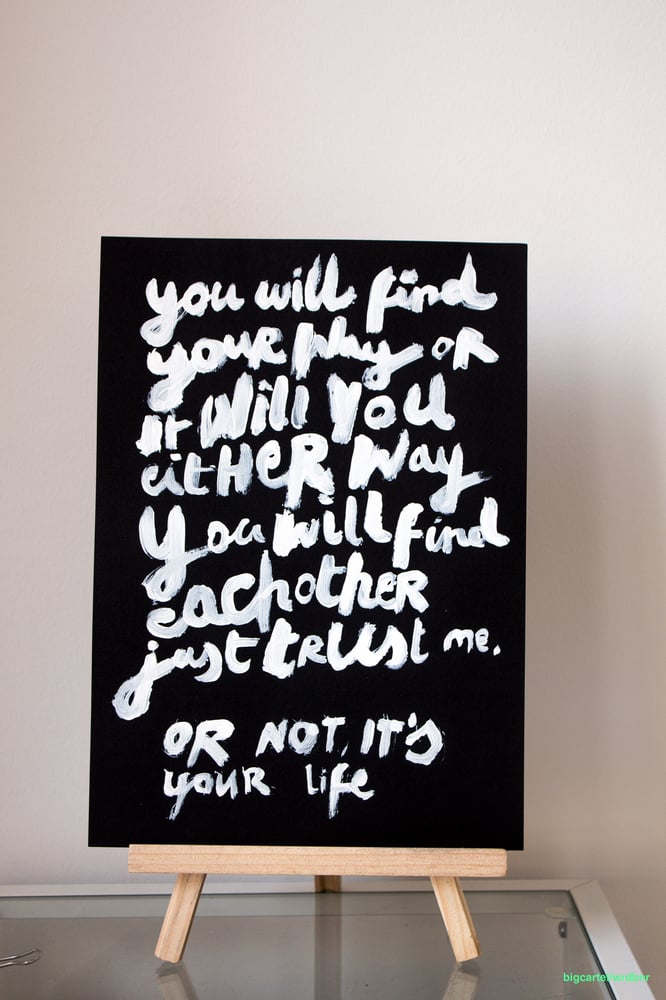 you will find
your way or
it will you
eitHeR way
you will find
eachother
just trust me.
OR NOT, IT'S
youR life